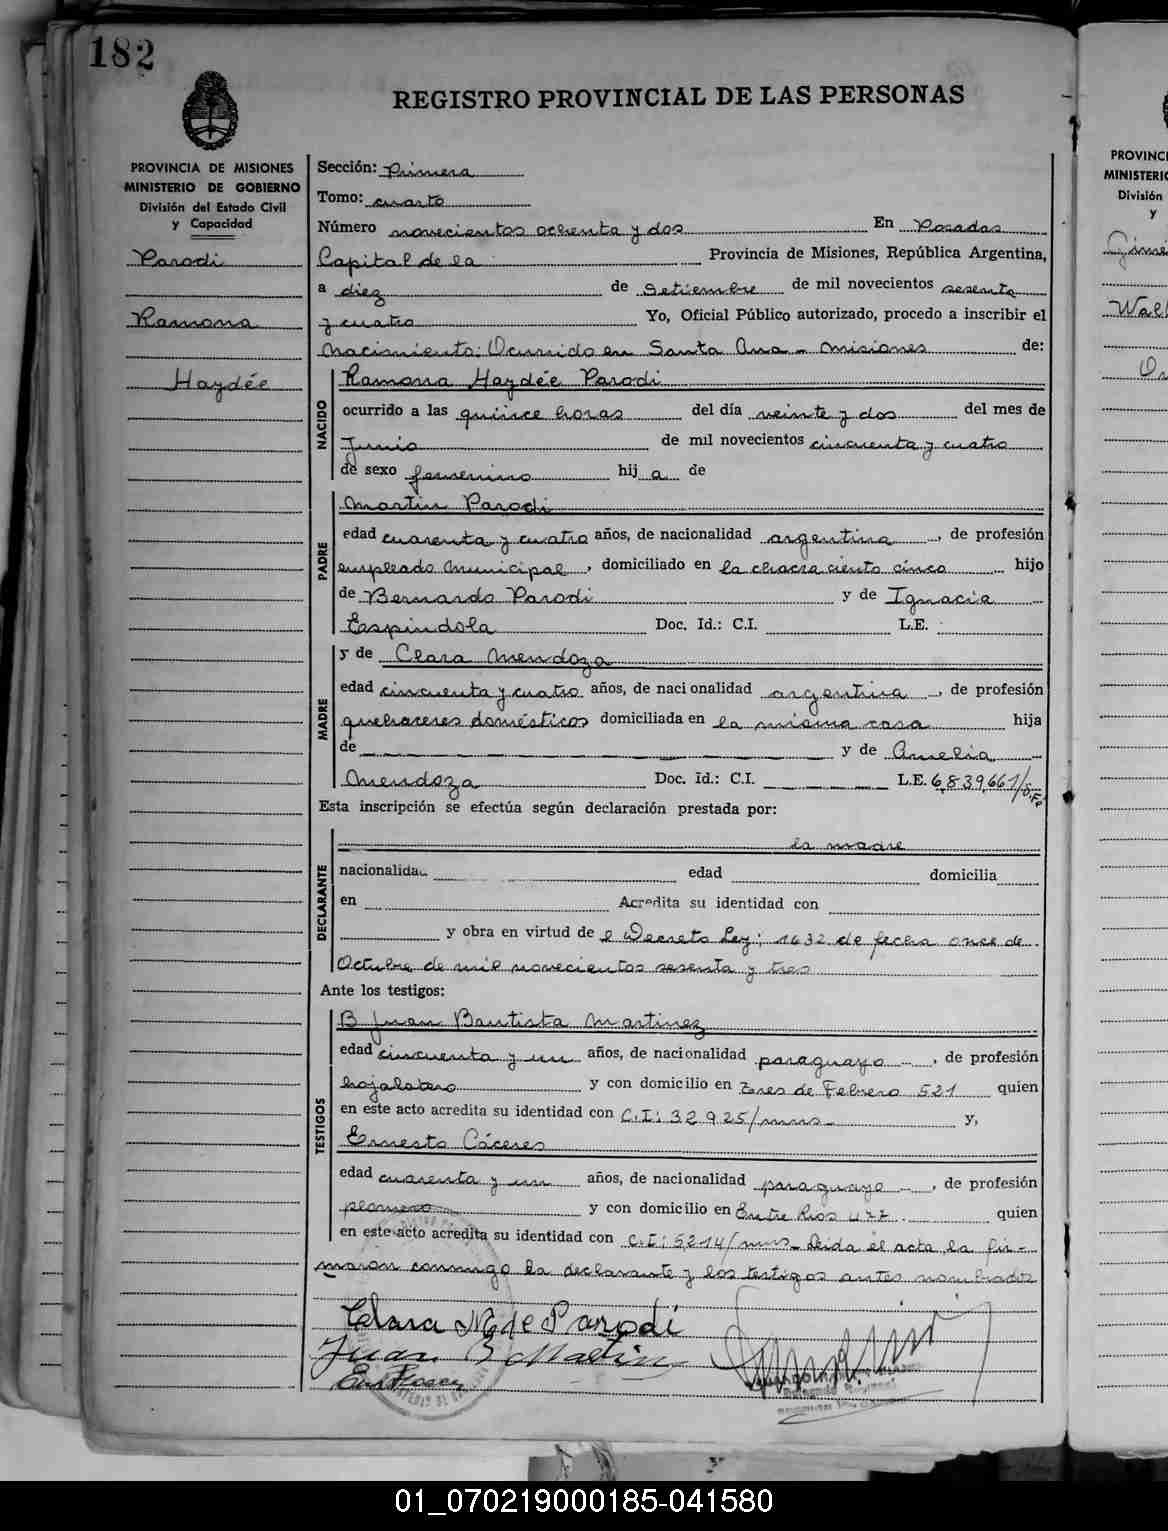 182
REGISTRO PROVINCIAL DE LAS PERSONAS
PROVINCIA DE MISIONES
MINISTERIO DE GOBIERNO
División del Estado Civil
y Capacidad
Parodi
Ramona
Haydée
Sección: Primera
Tomo: cuarto
Número novecientos ochenta y dos En Posadas
Capital de la Provincia de Misiones, República Argentina,
a diez de Setiembre de mil novecientos sesenta
y cuatro Yo, Oficial Público autorizado, procedo a inscribir el
Nacimiento: Ocurrido en Santa Ana - Misiones de:
NACIDO
Ramona Haydée Parodi
ocurrido a las quince horas del día veinte y dos del mes de
Junio de mil novecientos cincuenta y cuatro
de sexo femenino hij a de
PADRE
Martin Parodi
edad cuarenta y cuatro años, de nacionalidad argentina, de profesión
empleado municipal, domiciliado en la chacra ciento cinco hijo
de Bernardo Parodi y de Ignacia
Espindola Doc. Id.: C.I. L.E.
MADRE
y de Clara Mendoza
edad cincuenta y cuatro años, de nacionalidad argentina, de profesión
quehaceres domésticos domiciliada en la misma casa hija
de y de Amelia
Mendoza Doc. Id.: C.I. L.E. 6.839.661
Esta inscripción se efectúa según declaración prestada por:
DECLARANTE
la madre
nacionalidad edad domicilia
en Acredita su identidad con
y obra en virtud de l Decreto Ley; 1632 de fecha once de
Octubre de mil novecientos sesenta y tres
Ante los testigos:
TESTIGOS
B Juan Bautista Martinez
edad cincuenta y un años, de nacionalidad paraguayo, de profesión
hojalatero y con domicilio en Tres de Febrero 521 quien
en este acto acredita su identidad con C.I: 32925/mns- y,
Ernesto Cáceres
edad cuarenta y un años, de nacionalidad paraguayo, de profesión
plomero y con domicilio en Entre Rios 477 quien
en este acto acredita su identidad con C.I: 5214/mns- Leida el acta la fir-
maron conmigo la declarante y los testigos antes nombrados
Clara M de Parodi
Juan B Martin
PROVINC
MINISTERIO
División
y
Gime
Wal
01_070219000185-041580